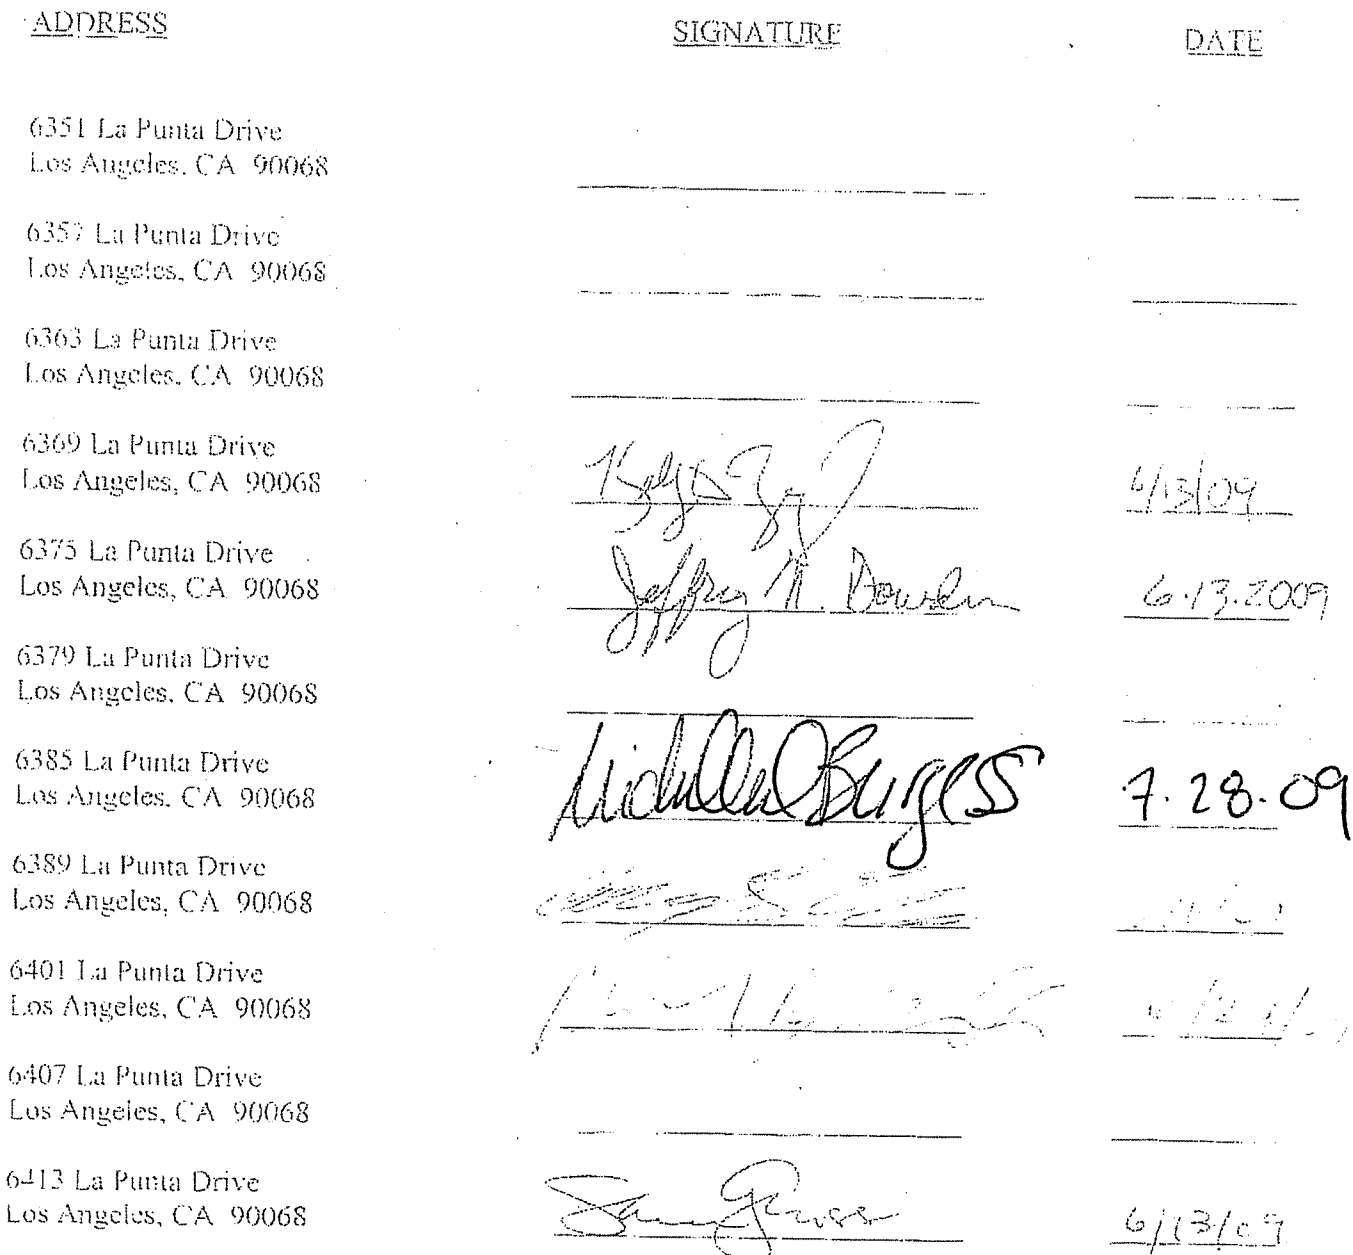 ADDRESS SIGNATURE DATE
6351 La Punta Drive
Los Angeles, CA 90068
6357 La Punta Drive
Los Angeles, CA 90068
6363 La Punta Drive
Los Angeles, CA 90068
6369 La Punta Drive
Los Angeles, CA 90068 6/13/09
6375 La Punta Drive
Los Angeles, CA 90068 Jeffrey N. 6.13.2009
6379 La Punta Drive
Los Angeles, CA 90068
6385 La Punta Drive
Los Angeles, CA 90068 Burgess 7.28.09
6389 La Punta Drive
Los Angeles, CA 90068
6401 La Punta Drive
Los Angeles, CA 90068
6407 La Punta Drive
Los Angeles, CA 90068
6413 La Punta Drive
Los Angeles, CA 90068 Gross 6/13/09